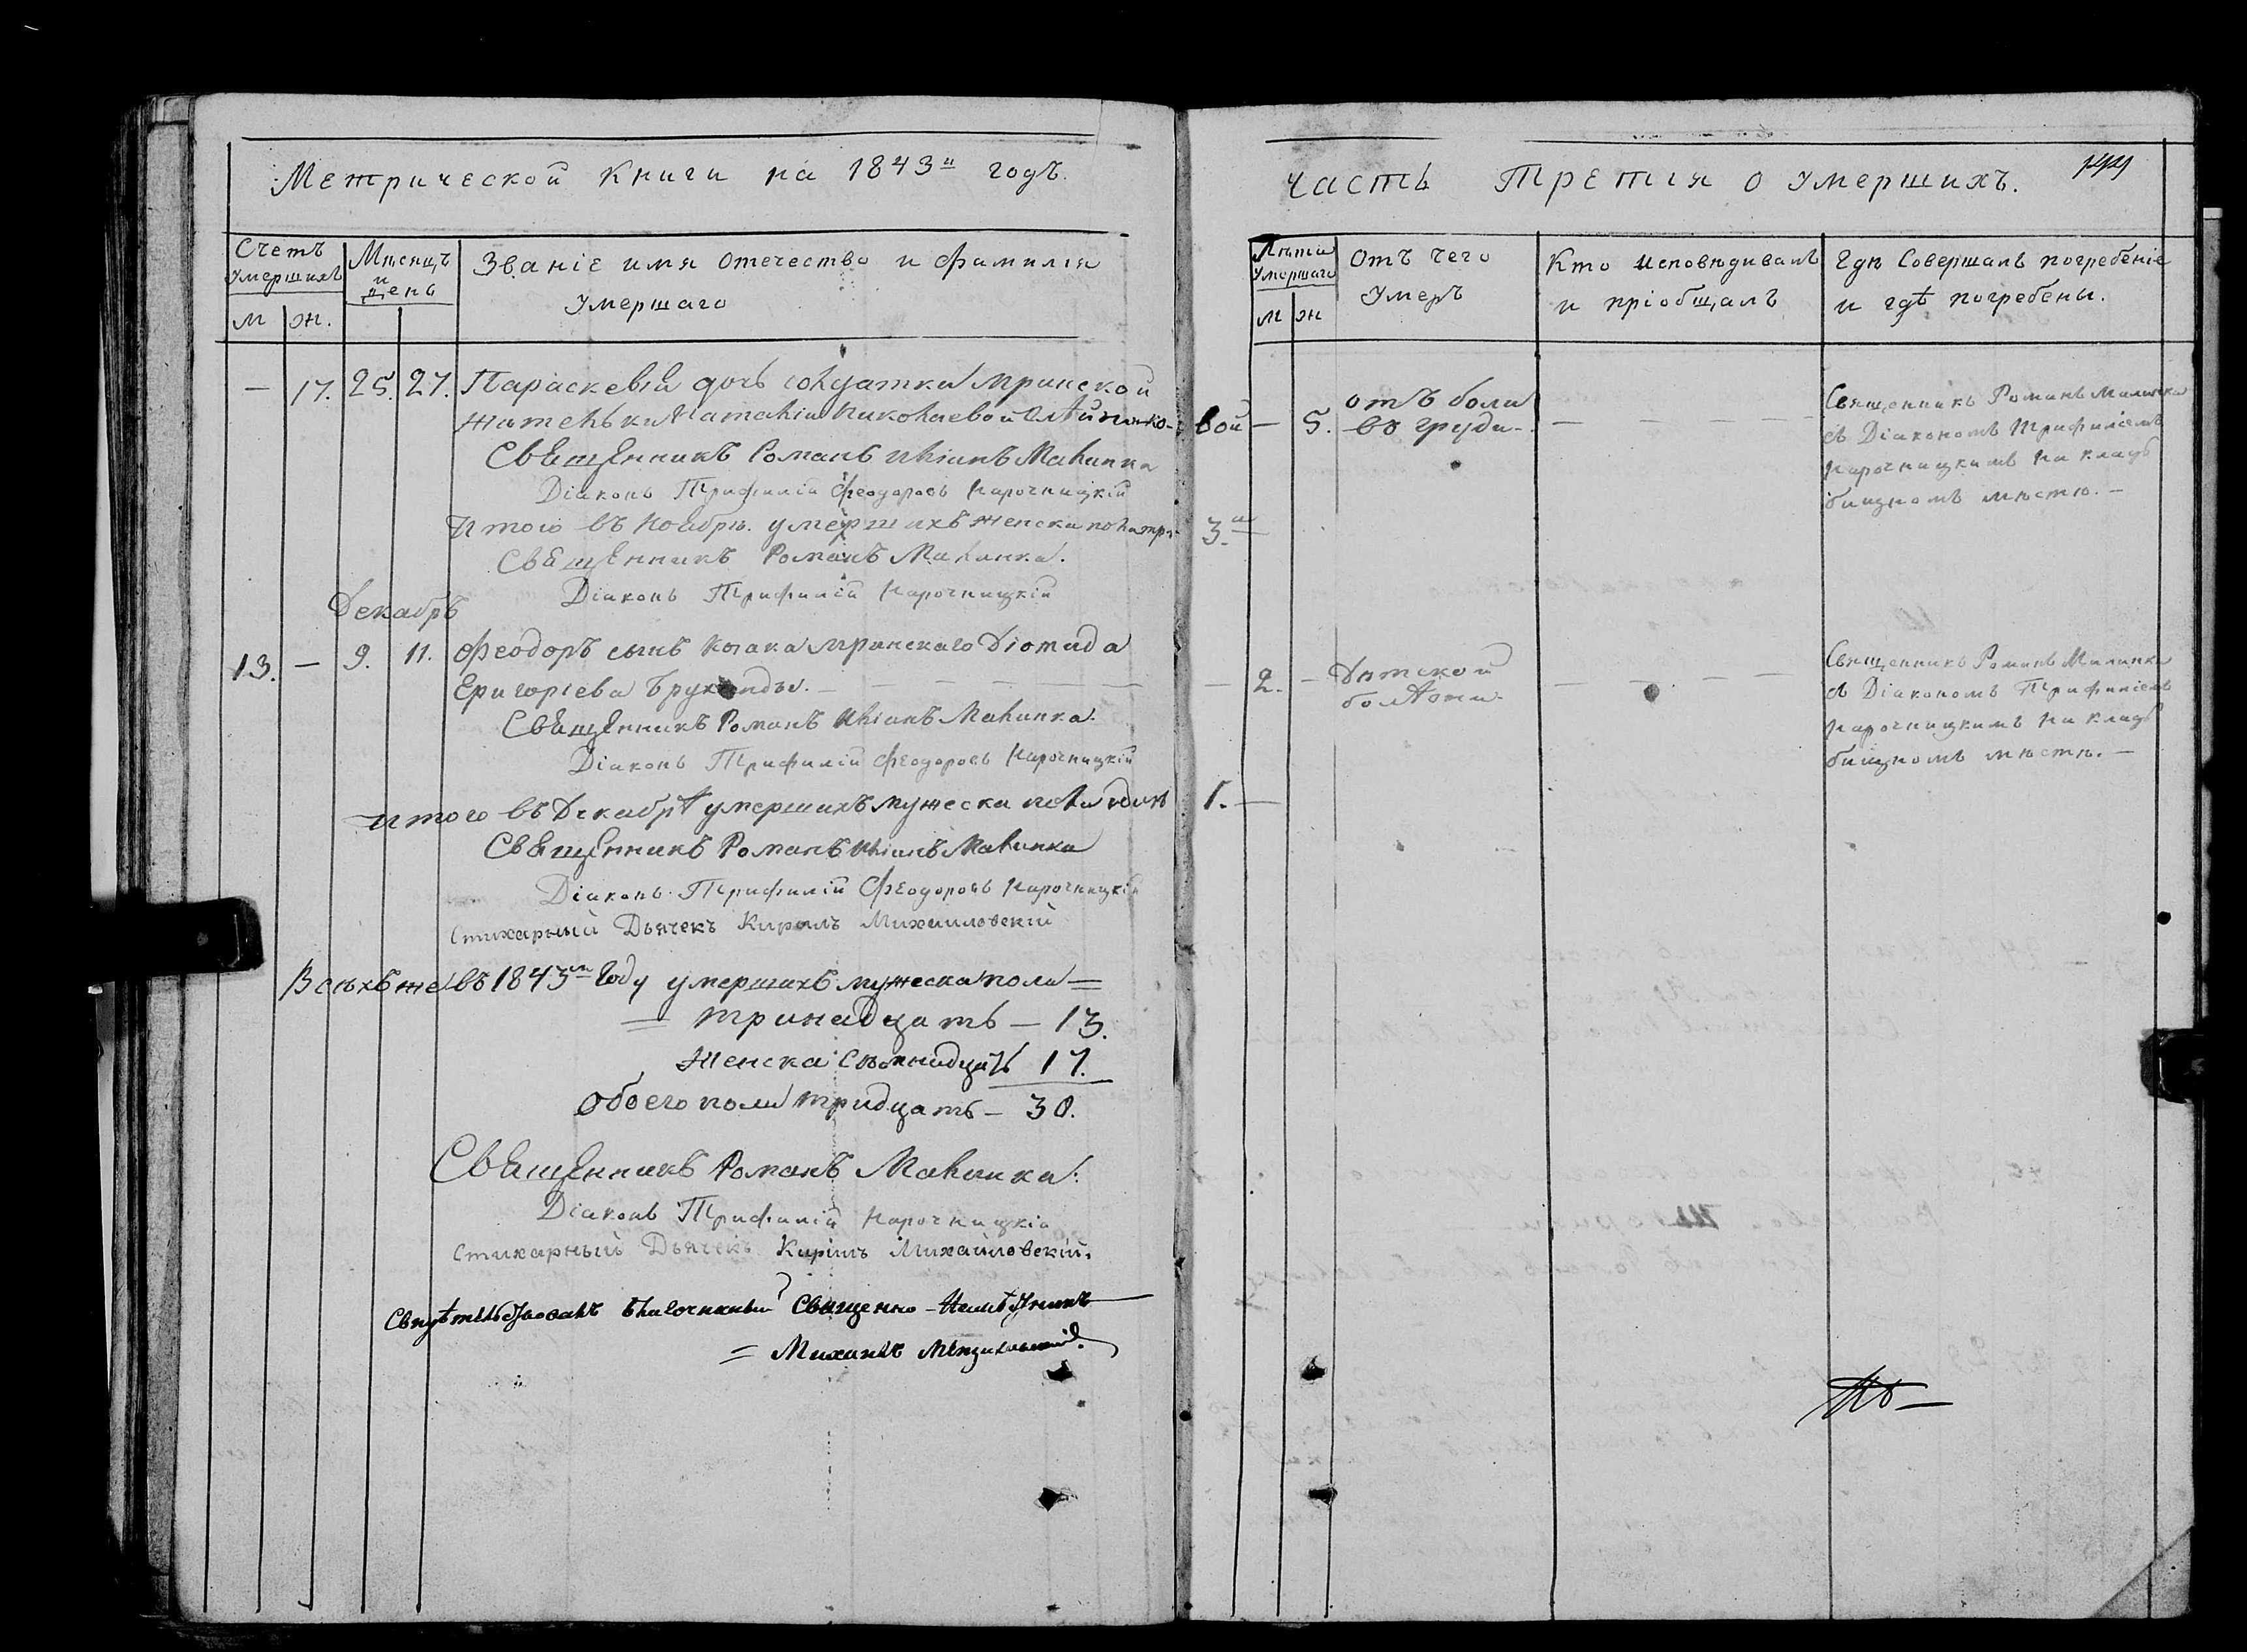 Метрической книги на 1843й годъ.
Счетъ умершихъ
Мѣсяцъ и день
Званіе имя отечество и фамилія
умершаго
м ж.
— 17. 25. 27. Параскевія дочь солдатки мринской
жительки Наталіи Николаевой Олѣйнико-
Священникъ Романъ Иліинъ Малинка
Діаконъ Трифилій Феодоровъ Нарочницкій
Итого въ Ноябрѣ умершихъ женска пола три
Священникъ Романъ Малинка.
Діаконъ Трифилій Нарочницкій
Декабръ
13. — 9. 11. Феодоръ сынъ козака мринскаго Діомида
Григоріева
Священникъ Романъ Иліинъ Малинка.
Діаконъ Трифилій Феодоровъ Нарочницкій
итого въ Декабрѣ умершихъ мужеска пола одинъ
Священникъ Романъ Иліинъ Малинка
Діаконъ Трифилій Феодоровъ Нарочницкій
Стихарный Дьячекъ Кирилъ Михайловскій
Всѣхъ же въ 1843м году умершихъ мужеска пола =
= тринадцать — 13.
Женска семнадцать 17.
обоего пола тридцать — 30.
Священникъ Романъ Малинка.
Діаконъ Трифилій Нарочницкій
стихарный Дьячекъ Кирилъ Михайловскій.
Свидѣтельствовалъ благочинный Священно-Намѣстникъ
= Михаилъ
часть третія о умершихъ.
Лѣта умершаго
Отъ чего
умеръ
Кто исповѣдивалъ
и пріобщалъ
Гдѣ совершалъ погребеніе
и гдѣ погребены.
м ж
вой — 5. отъ боли
въ груди — — — —
Священникъ Романъ Малинка
съ Діакономъ Трифиліемъ
Нарочницкимъ на клад
бищномъ мѣстѣ. —
3.и
— 2. — Дѣтской
болѣзни. — — — —
Священникъ Романъ Малинка
съ Діакономъ Трифиліемъ
Нарочницкимъ на клад
бищномъ мѣстѣ. —
1. —